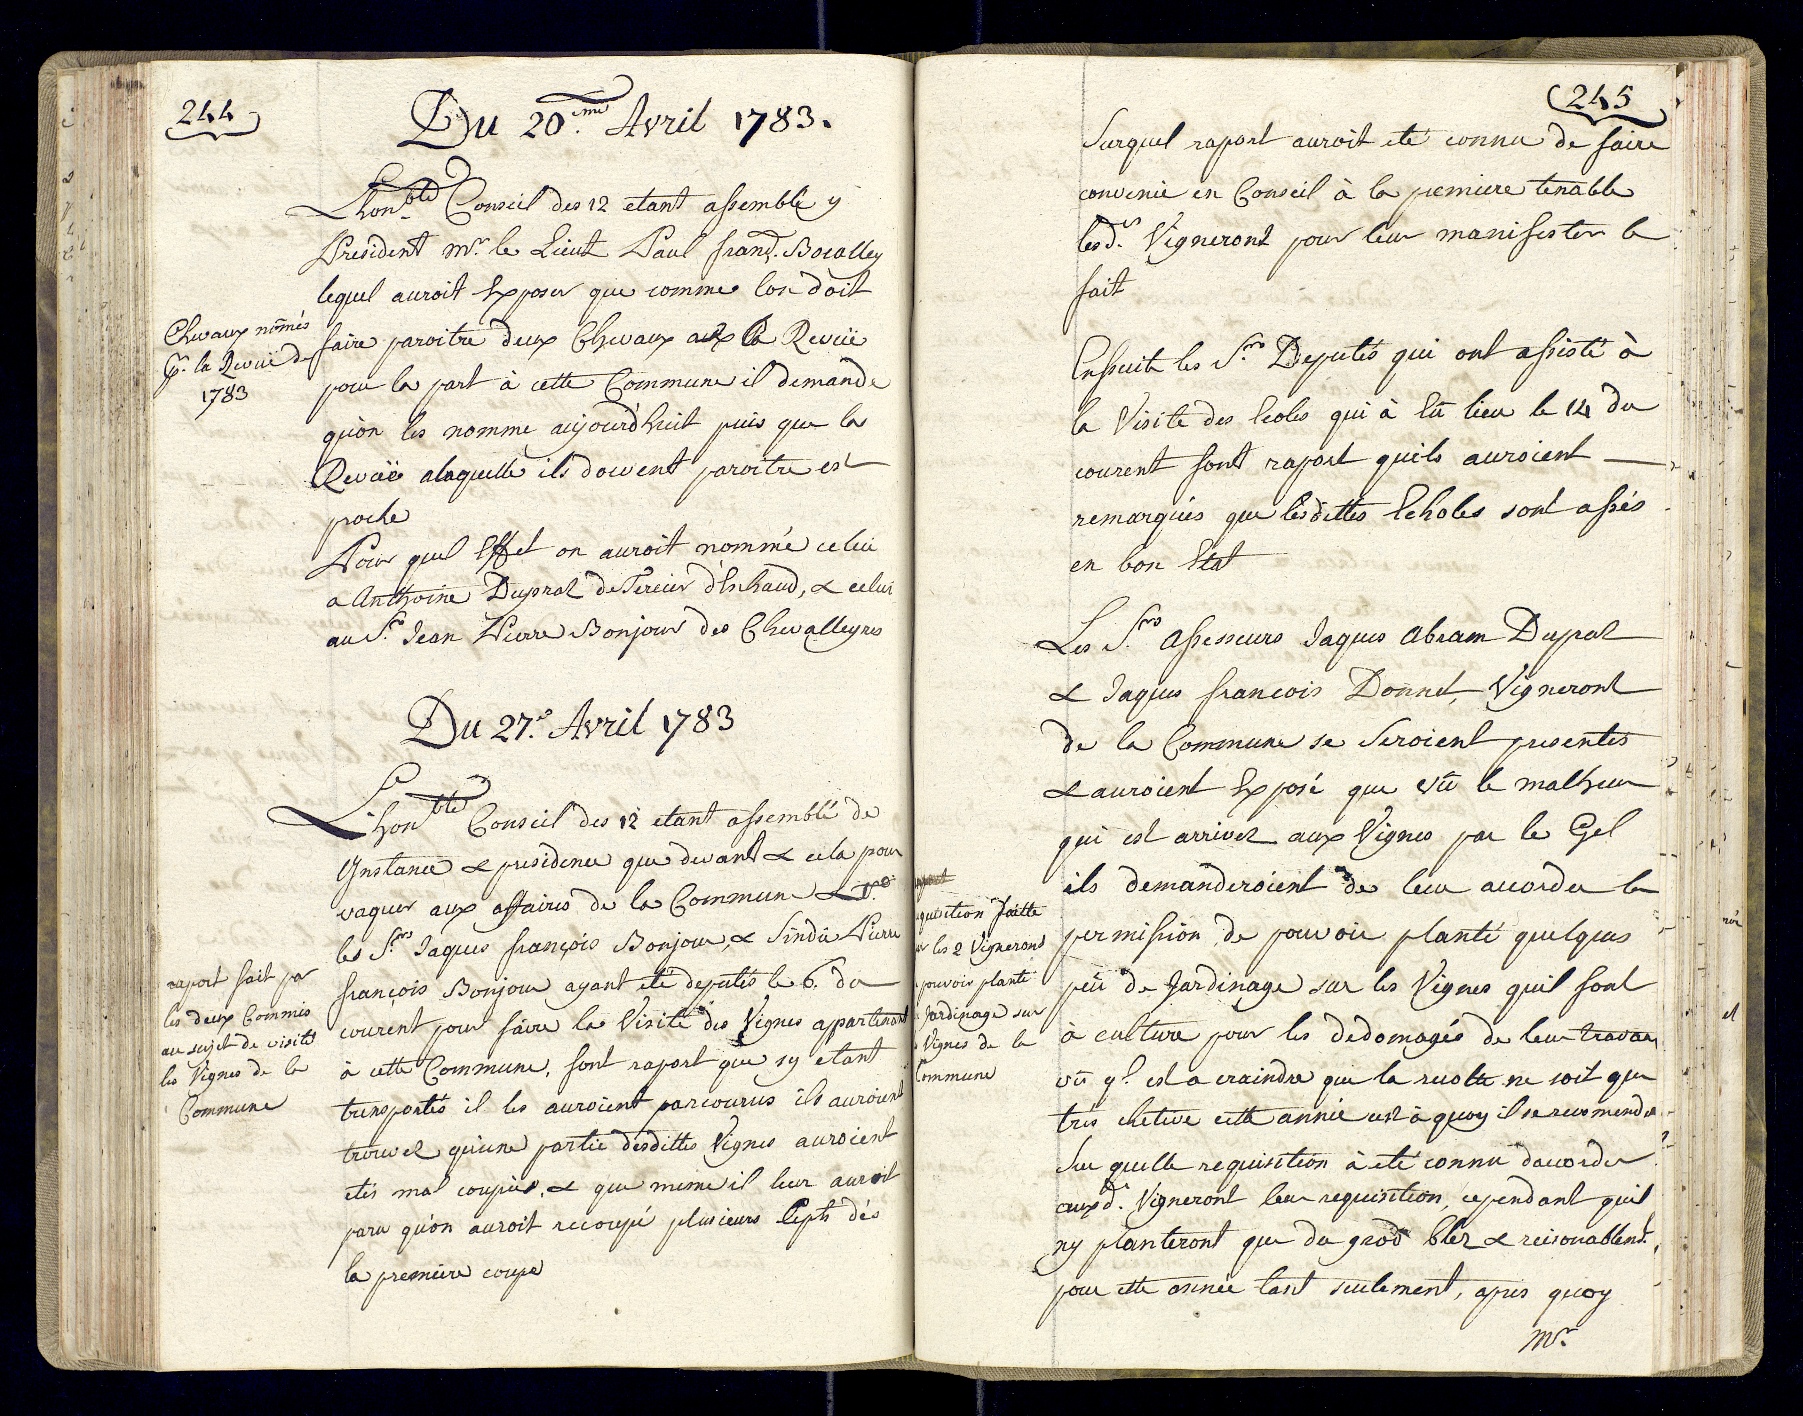 244
Du 20.me Avril 1783.
Lhon.ble Conseil des 12 etant assemblé y
President Mr. le Lieut Paul franç. Bocalley
lequel auroit Exposer que comme lon doit
Chevaux nômés
pr. la Revuë de
1783
faire paroitre deux Chevaux a la Revuë
pour la part à cette Commune il demande
qu'on les nomme aujourd'huit puis que la
Revuë alaquelle ils doivent paroitre est
proche
Pour quel Effet on auroit nommé celui
a Anthoine Dupraz de Tercier d'Enhaud, & celui
au Sr. Jean Pierre Bonjour des Chevalleyres
Du 27.e Avril 1783
L'hon.ble Conseil des 12 etant assemblé de
Ynstance & presidence que devant & cela pour
vaquer aux affaires de la Commune &
les Srs. Jaques françois Bonjour, & Sindic Pierre
françois Bonjour ayant eté deputés le 6. du
raport fait par
les deux Commis
au sujet de visité
les Vignes de la
Commune
courent pour faire la Visite des Vignes appartenant
à cette Commune, font raport que sy etant
transportés il les auroient parcourus ils auroient
trouvez qu'une partie desdittes Vignes auroient
etés mal coupées, & que meme il leur auroit
paru qu'on auroit recoupé plusieurs Cepts dés
la premiere coupe
245
Surquel raport auroit eté connu de faire
convenir en Conseil à la premiere tenable
lesd.s Vigneront pour leur manifester le
fait
Ensuit les Srs. Deputés qui ont assisté à
la Visite des Ecoles qui à Eû lieu le 14 du
courent font raport quils auroient
remarqués que lesdittes Echoles sont assés
en bon Etat
Les Srs. Assesseurs Jaques Abram Dupraz
& Jaques francois Donnet, Vigneront
de la Commune se Seroient presentés
& auroient Exposé que vû le malheur
qui est arrivez aux Vignes par le Gel
ils demanderoient de leur accorder la
quisition faitte
les 2 Vignerons
pouvoir planté
Jardinage sur
Vignes de la
Commune
permission de pouvoir planté quelques
peû de Jardinage sur les Vignes quil font
à culture pour les dedomagés de leur travau
vû ql. est a craindre que la recolte ne soit que
tres chetive cette année est à quoy il se recomende
Sur quelle requisition à eté connu dacorder
auxd.s Vigneront leur requisition, cependant quil
ny planteront que du gros blez & raisonablemt.
pour cette année tant seulement, apres quoy
Mr.